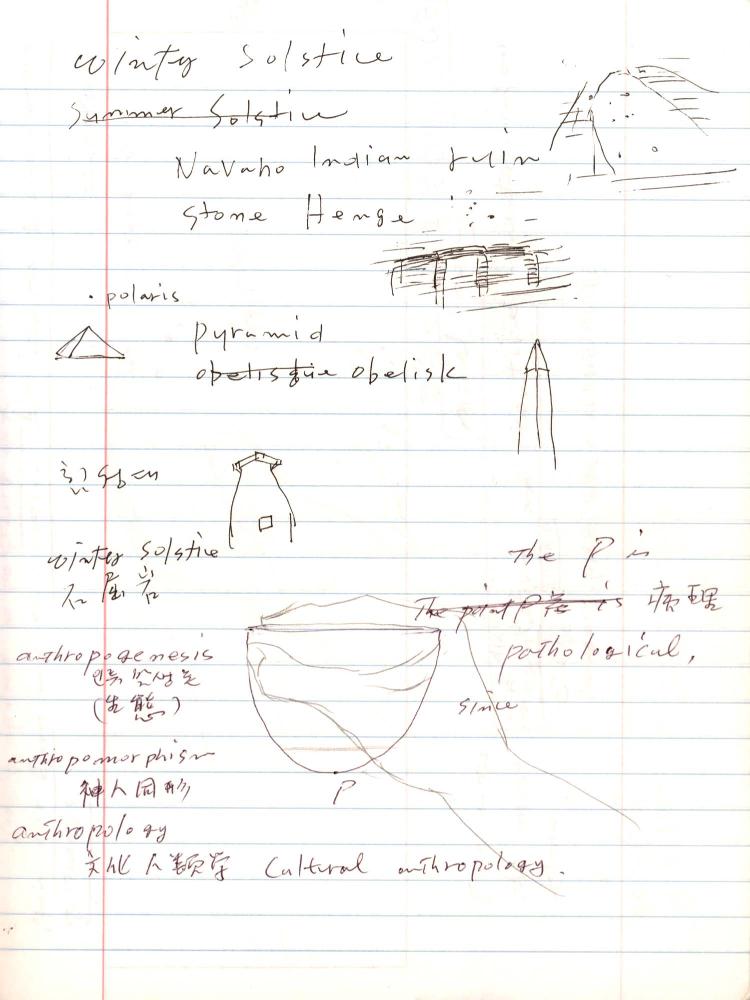 winty Solstice
Summer Solstice
Navaho Indian ruin
Stone Henge
. polaris
pyramid
obelisk
첨성대
winty Solstice
The P is
石屈岩
The point P is 病理
pathological,
anthropogenesis
(生態)
since
anthropomorphism
神人同形
P
anthropology
文化人類学 Cultural anthropology.